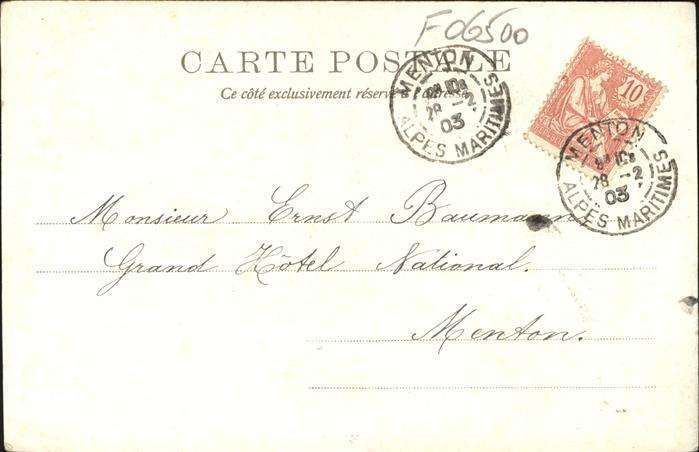 F06500
CARTE POSTALE
Ce côté exclusivement réservé à l'adresse
MENTON
28 -2
03
ALPES MARITIMES
10
MENTON
28 -2
03
ALPES MARITIMES
Monsieur Ernst Baumann,
Grand Hôtel National.
Menton.